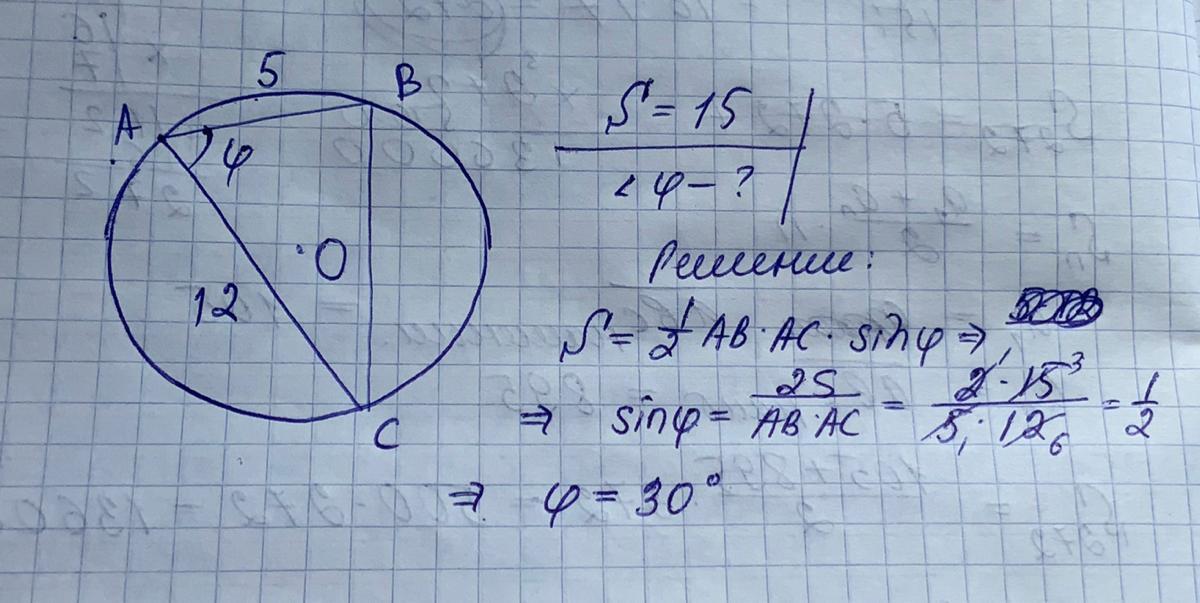 5
A
B
φ
O
12
C
S = 15
∠ φ - ?
Решение:
S = 1/2 AB · AC · sinφ ⇒
⇒ sinφ = 2S/(AB·AC) = (2·15)/(5·12) = 1/2
1 3
1 6
⇒ φ = 30°